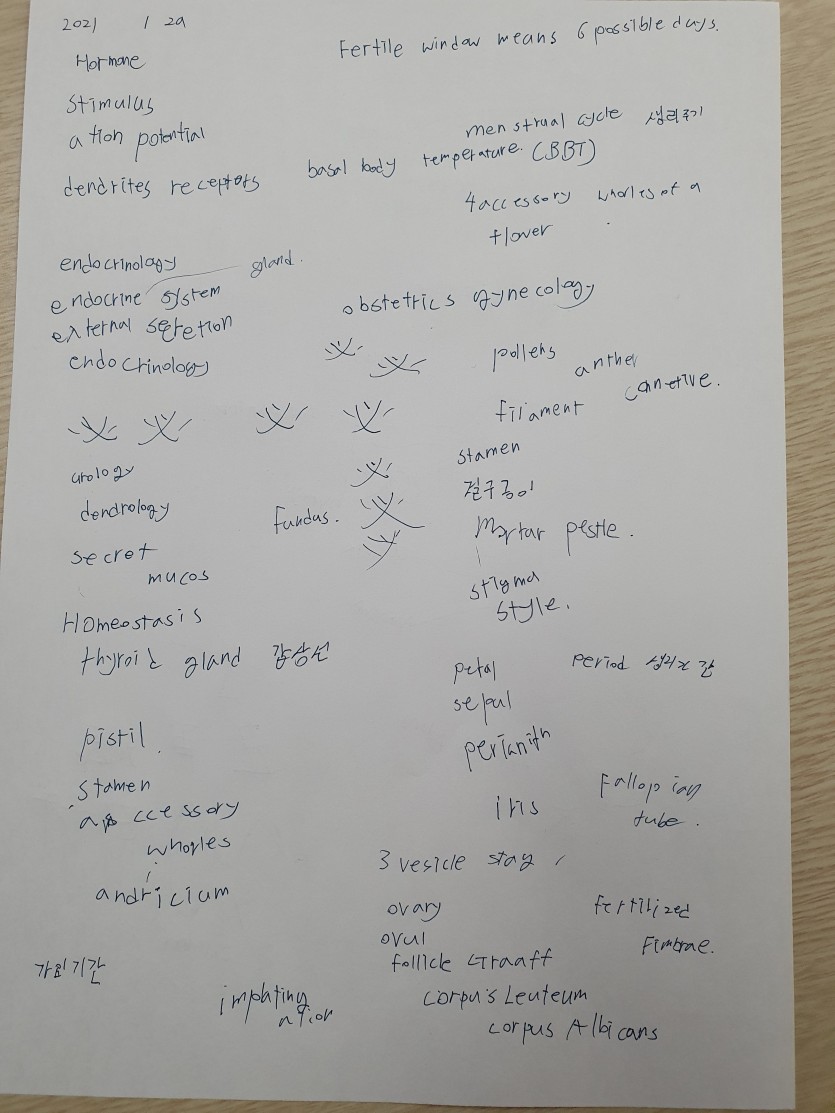 2021 1 29
Hormone
Fertile window means 6 possible days.
stimulus
ation potential
menstrual cycle 생리주기
dendrites receptors
basal body temperature. (BBT)
4 accessory whorles of a
flover
endocrinology
gland.
endocrine system
external secretion
endocrinology
obstetrics gynecology
pollens anther
filament
stamen
urology
dendrology
fundus.
Mortar pestle.
secret
mucos
stigma
style.
Homeostasis
thyroid gland 갑상선
petal
period
sepal
pistil.
perianith
stamen
accessory
whorles
Fallopian
tube.
iris
3 vesicle stay
andricium
ovary
fertilized
ovul
Fimbrae.
follicle Graaff
가임기간
implating
ation
corpus Leuteum
corpus Albicans